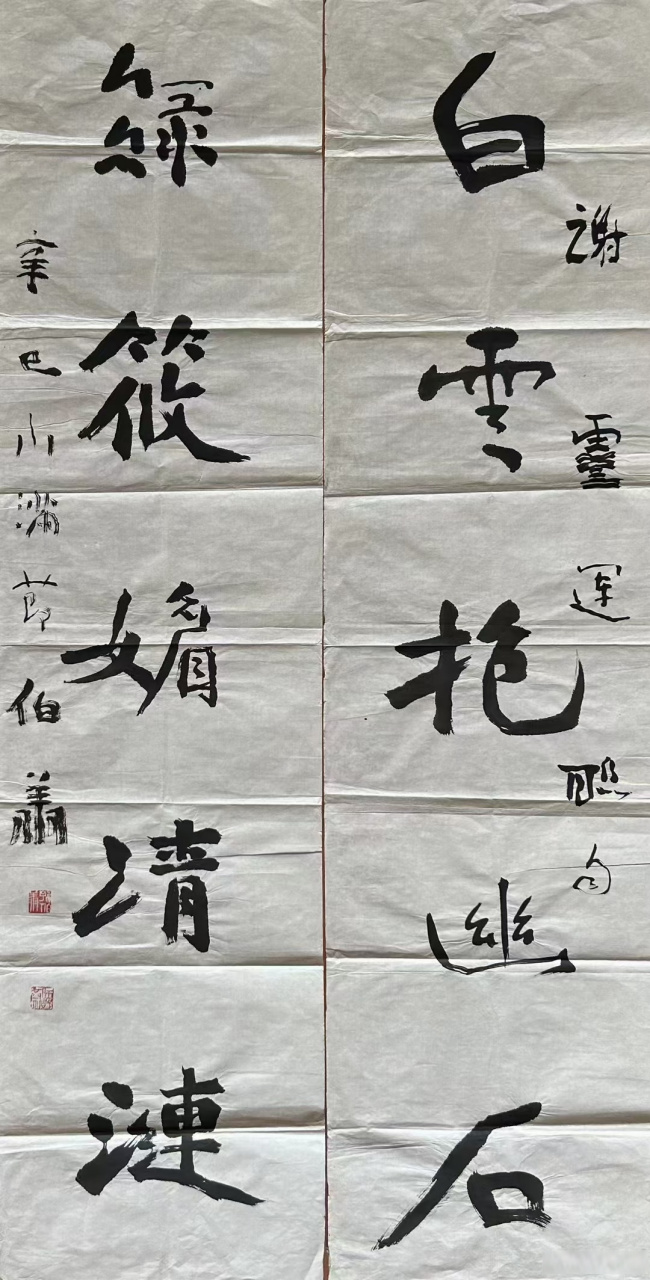 白雲抱幽石
謝靈運聯句
綠筱媚清漣
辛巳小滿節伯